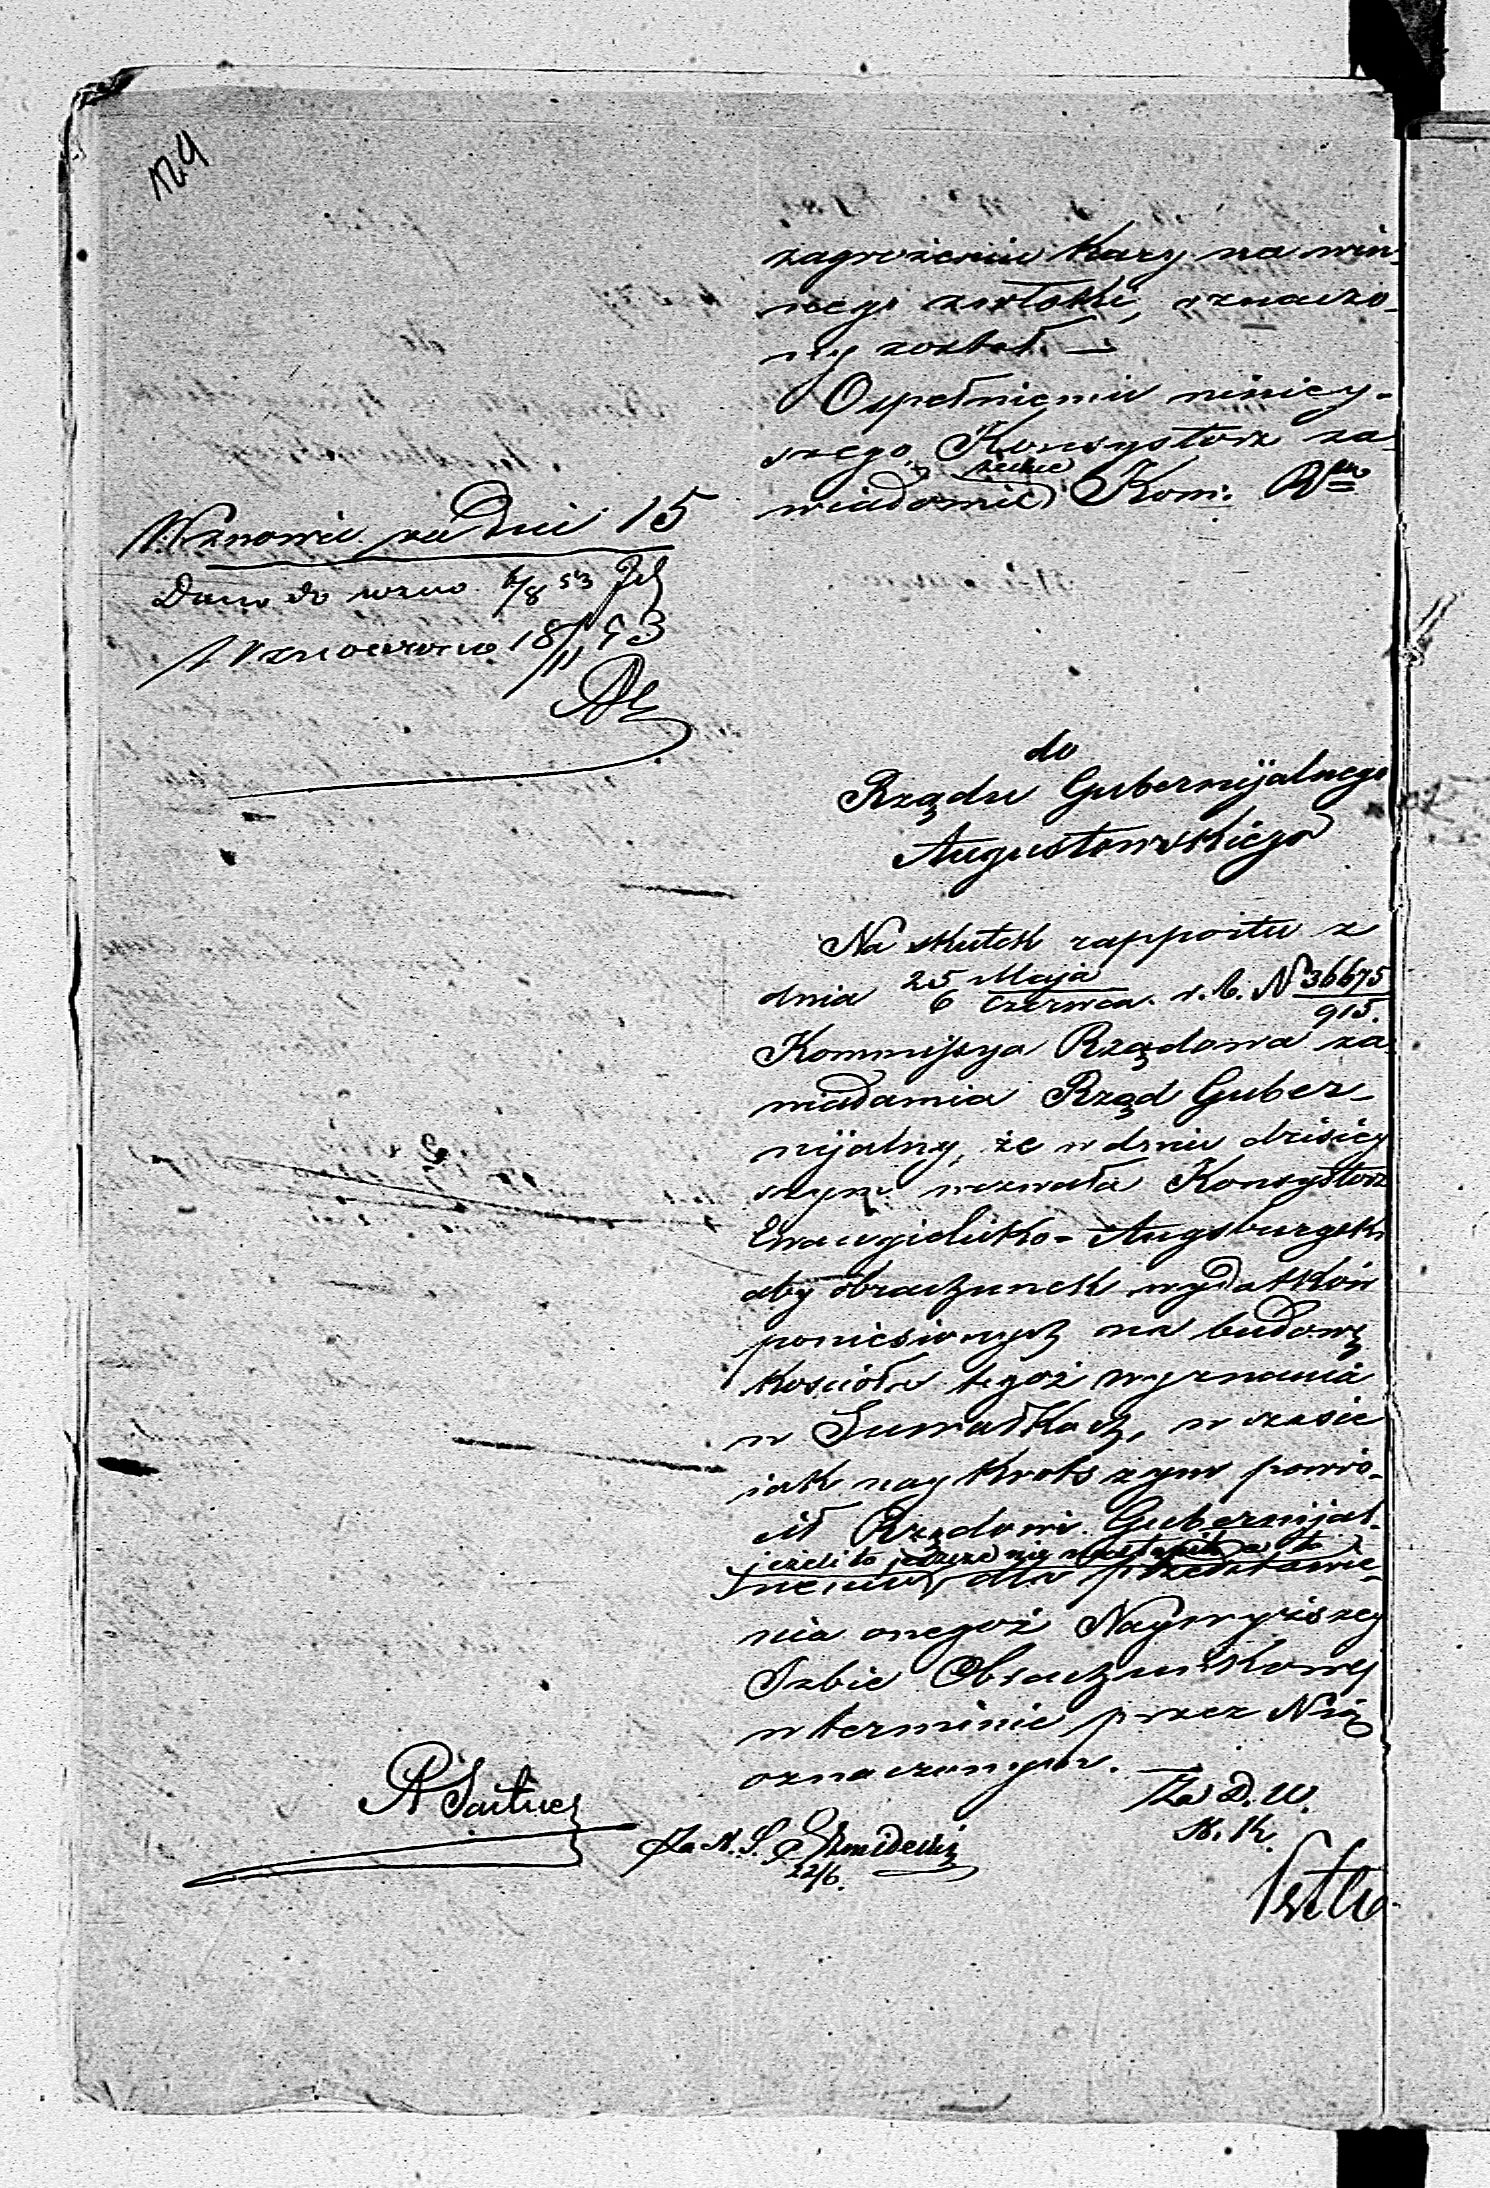 zagrożeniu kary na win-
nego zwłoki, oznaczo-
ny został —
O spełnieniu niniey-
szego Konsystorz za-
wiadomić Kom: R
Wznowić za Dni 15
Dano do wzno 6/8 53
Wznowiono 18/11 53
do
Rządu Gubernijalnego
Augustowskiego
Na skutek rapportu z
dnia 25 Maja / 6 Czerwca r. b. N 36675/915.
Kommissya Rządowa za-
wiadamia Rząd Guber-
nijalny, że w dniu dzisiey-
szym wezwała Konsystorz
Ewangielicko-Augsburgski
aby obrachunek wydatków
poniesionych na budowę
Kościoła tegoż wyznania
w Suwałkach, w czasie
iak naykrótszym powró-
cił Rządowi Gubernijal-
jeżeli to jeszcze nie nastąpiło
nemu, dla przedstawie-
nia onegoż Naywyższey
Izbie Obrachunkowey
w terminie przez Nią
oznaczonym.
Za D. W.
N. K.
Za N. S.
22/6.